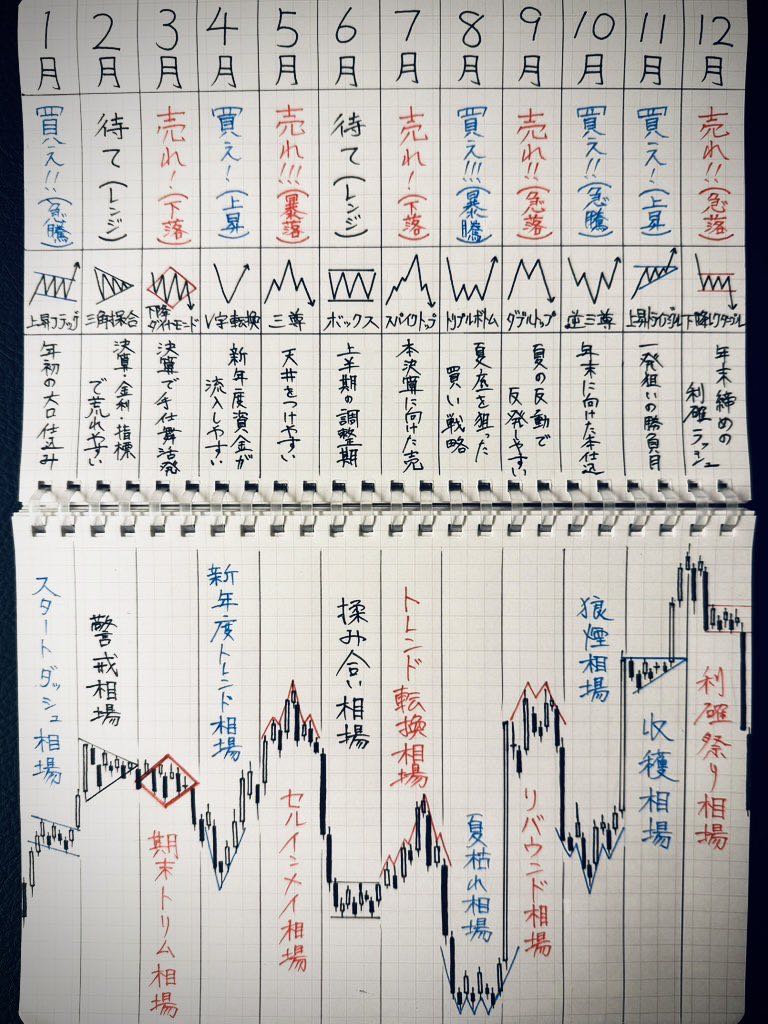 1月
2月
3月
4月
5月
6月
7月
8月
9月
10月
11月
12月
買え!!(急騰)
待て(レンジ)
売れ!(下落)
買え!(上昇)
売れ!!!(暴落)
待て(レンジ)
売れ!(下落)
買え!!!(暴騰)
売れ!!(急落)
買え!!(急騰)
買え!(上昇)
売れ!!(急落)
上昇フラッグ
三角保合
下降ダイヤモンド
V字転換
三尊
ボックス
スパイクトップ
トリプルボトム
ダブルトップ
逆三尊
上昇トライアングル
下降レクタングル
年初の大口仕込み
決算・金利・指標
で荒れやすい
決算で手仕舞活発
新年度資金が
流入しやすい
天井をつけやすい
上半期の調整期
本決算に向けた売
夏底を狙った
買い戦略
夏の反動で
反発しやすい
年末に向けた本仕込
一発狙いの勝負月
年末締めの
利確ラッシュ
スタートダッシュ相場
警戒相場
期末トリム相場
新年度トレンド相場
セルインメイ相場
揉み合い相場
トレンド転換相場
夏枯れ相場
リバウンド相場
狼煙相場
収穫相場
利確祭り相場